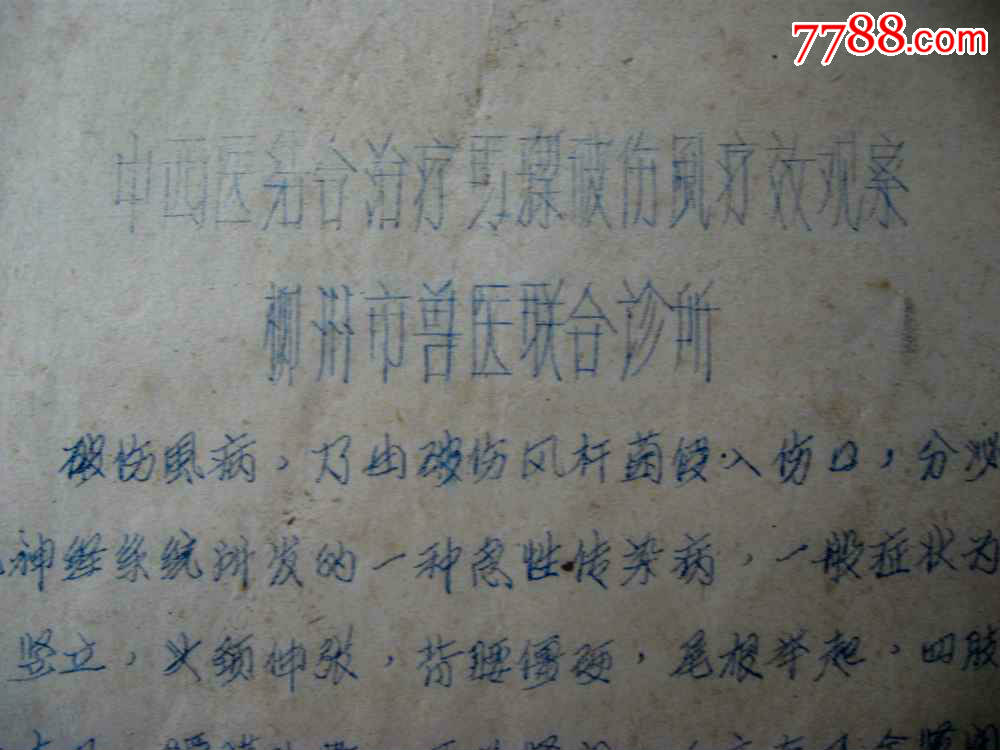 7788.com
中西医结合治疗马骡破伤风疗效观察
柳州市兽医联合诊所
破伤风病，乃由破伤风杆菌侵入伤口，分泌
神经系统引发的一种急性传染病，一般症状为
竖立，头颈伸张，背腰僵硬，尾根举起，四肢